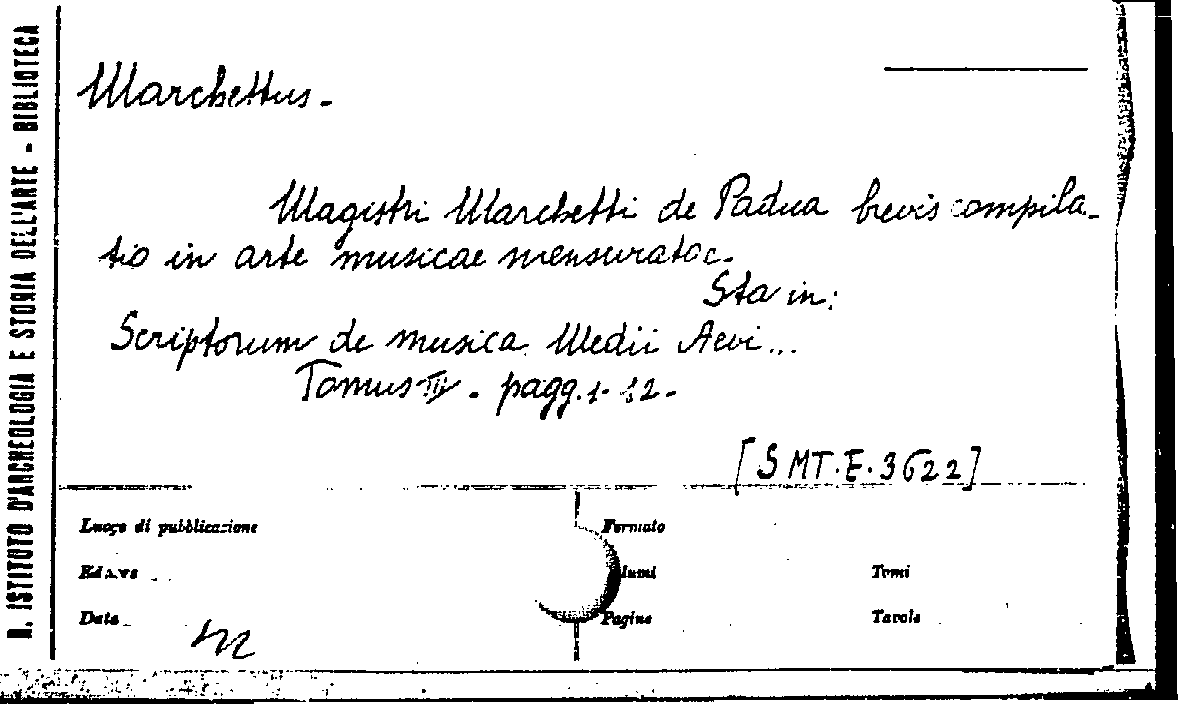 R. ISTITUTO D'ARCHEOLOGIA E STORIA DELL'ARTE - BIBLIOTECA
Marchettus.-
Magistri Marchetti de Padua brevis compila-
tio in arte musicae mensuratoe.
Sta in:
Scriptorum de musica Medii Aevi...
Tomus III - pagg. 1-12-
[SMT.E.3622]
Luogo di pubblicazione
Formato
Volumi
Tomi
Data
Pagine
Tavole